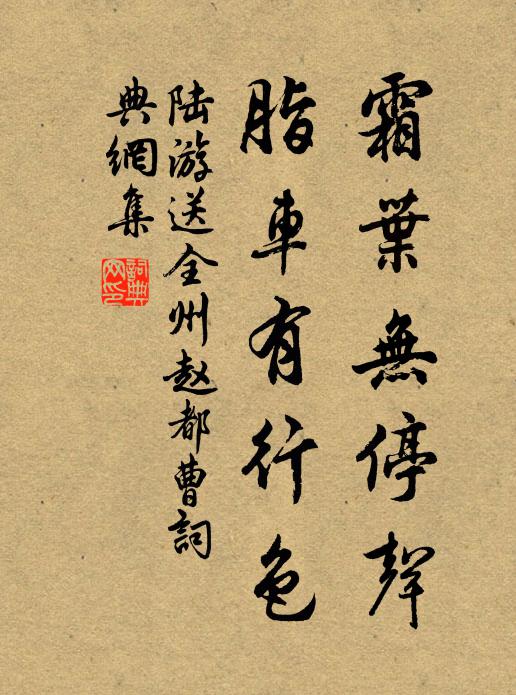 霜葉無停聲
脂車有行色
陆游送全州赵都曹詞
典網集
詞典
网印